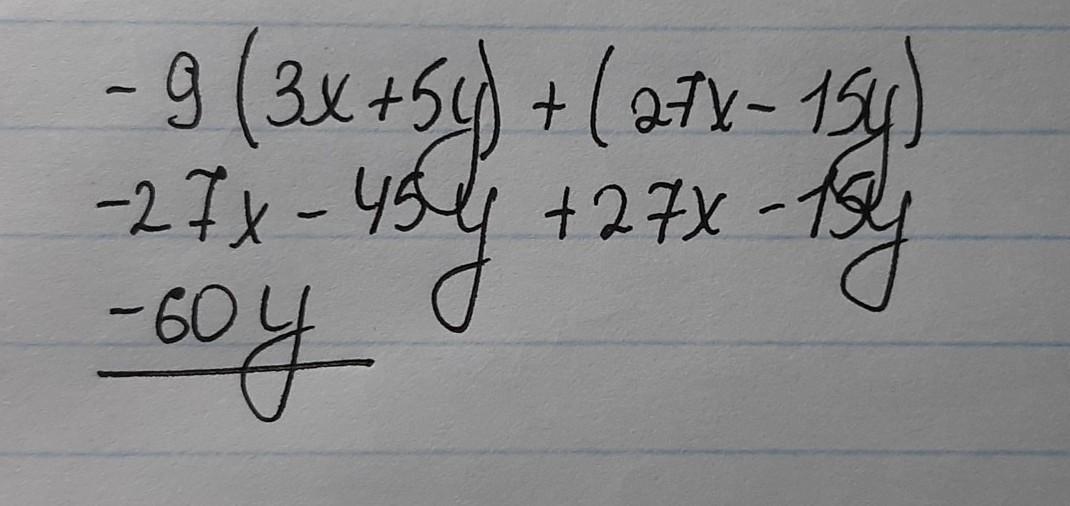 -9(3x+5y)+(27x-15y)
-27x-45y+27x-15y
-60y